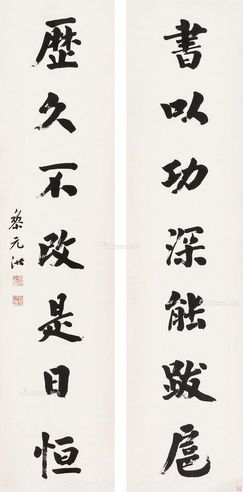 書以功深能跋扈
歷久不改是日恒
黎元洪